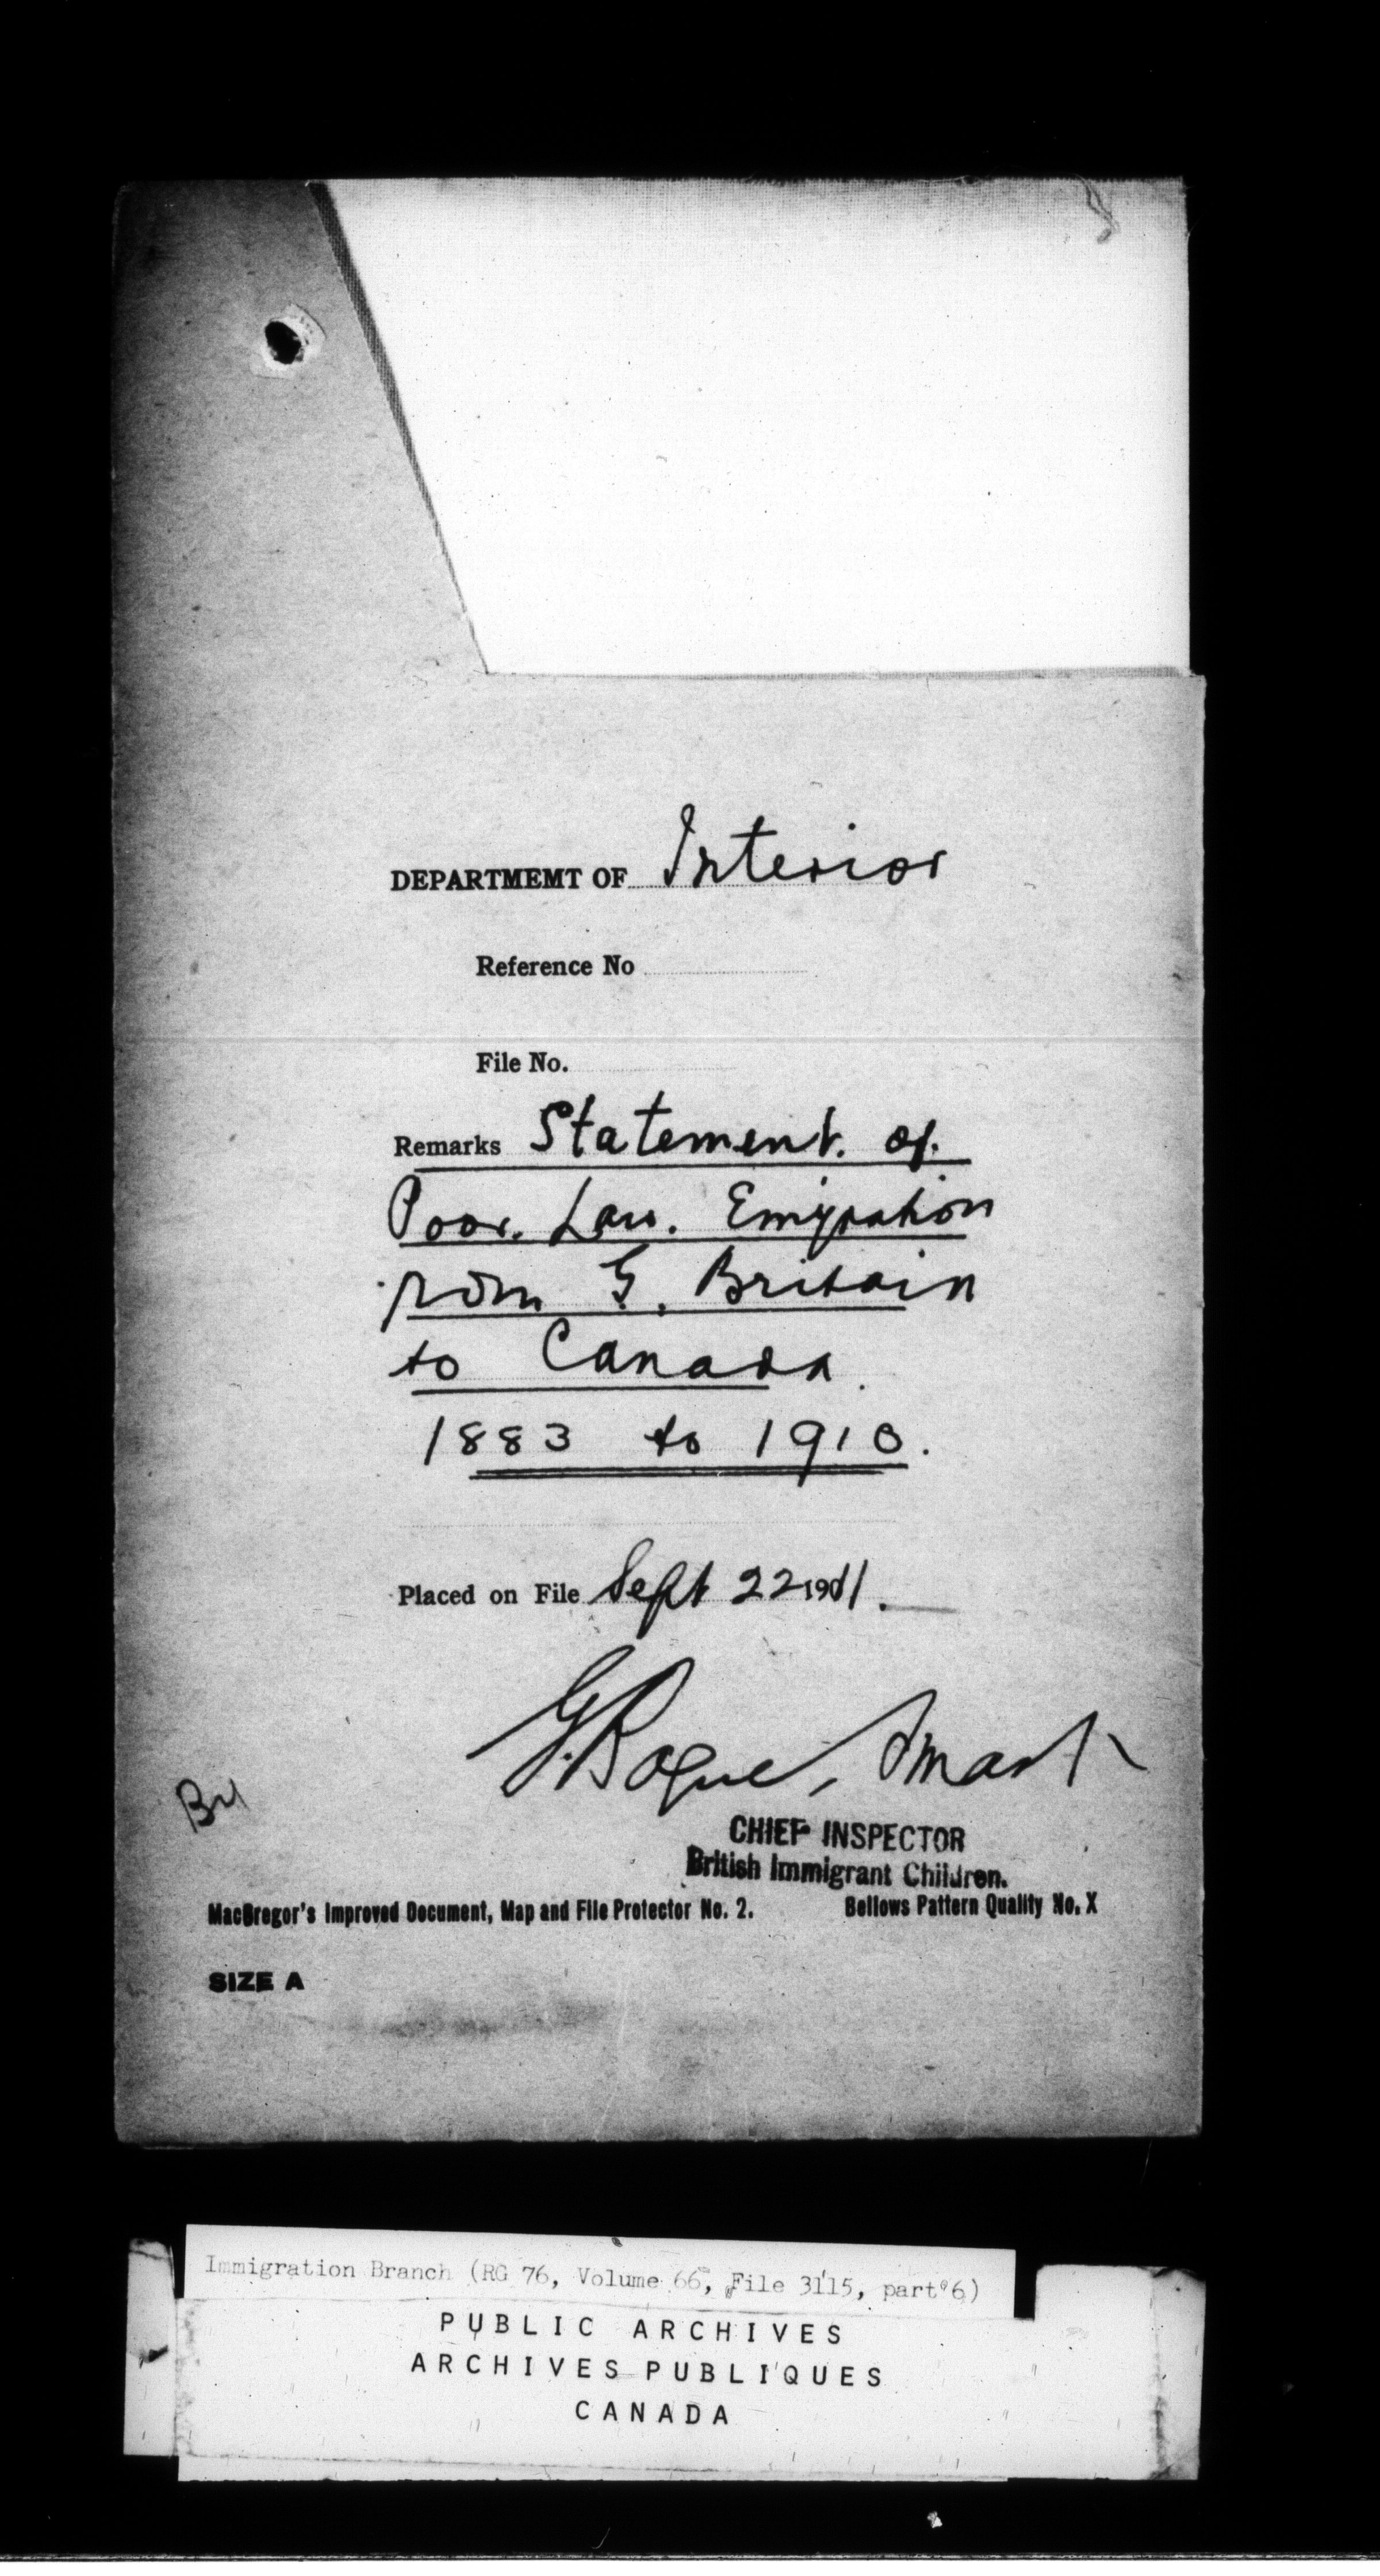 DEPARTMEMT OF Interior
Reference No
File No.
Remarks Statement. of.
Poor. Law. Emigration
from G. Britain
to Canada.
1883 to 1910.
Placed on File Sept 22 1911.
G. Bogue, Smart
CHIEF INSPECTOR
British Immigrant Children.
MacGregor's Improved Document, Map and File Protector No. 2. Bellows Pattern Quality No. X
SIZE A
Immigration Branch (RG 76, Volume 66, File 3115, part 6)
PUBLIC ARCHIVES
ARCHIVES PUBLIQUES
CANADA